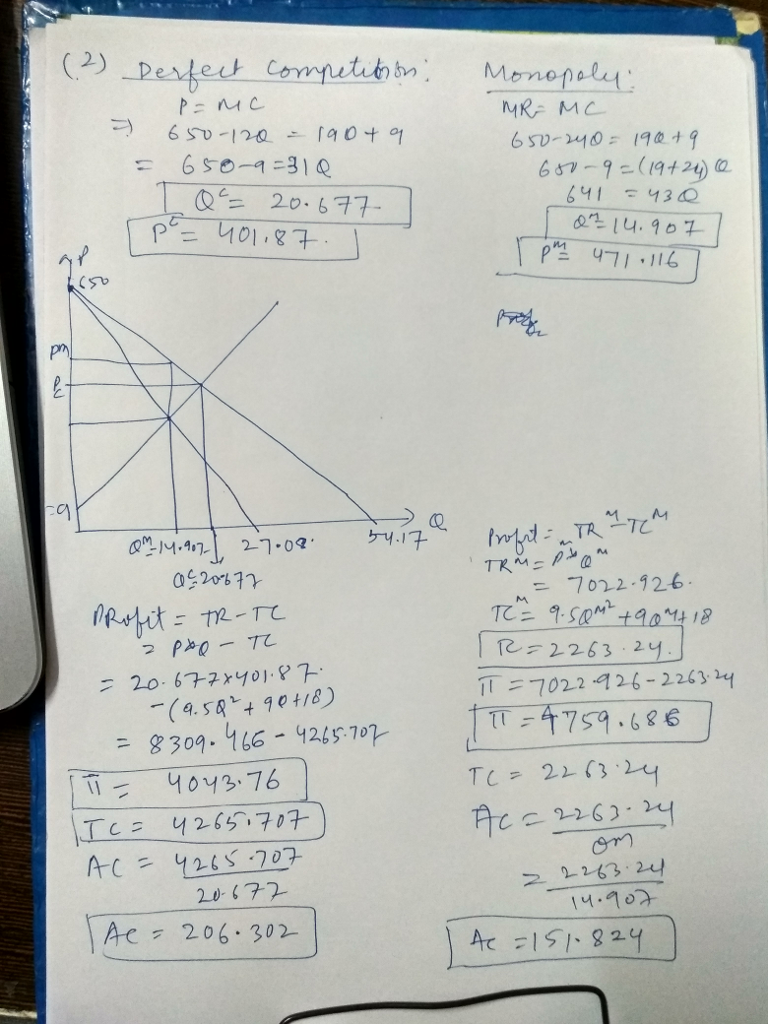 (2) Perfect Competition:
P = MC
⇒ 650-12Q = 19Q + 9
= 650-9 = 31Q
Q^c = 20.677
P^c = 401.87.
Monopoly:
MR = MC
650-24Q = 19Q + 9
650-9 = (19+24)Q
641 = 43Q
Q^m = 14.907
P^m = 471.116
P
650
Pm
Pc
=9
Q^m=14.907
27.08.
54.17
Q
Q^c=20.677
Profit = TR - TC
= P×Q - TC
= 20.677×401.87.
-(9.5Q² + 9Q+18)
= 8309.466 - 4265.707
π = 4043.76
TC = 4265.707
AC = 4265.707
20.677
AC = 206.302
Profit = TR^M - TC^M
TR^M = P^m×Q^m
= 7022.926.
TC^M = 9.5Q^m² + 9Q^m + 18
TC = 2263.24.
π = 7022.926 - 2263.24
π = 4759.686
TC = 2263.24
AC = 2263.24
Qm
= 2263.24
14.907
AC = 151.824